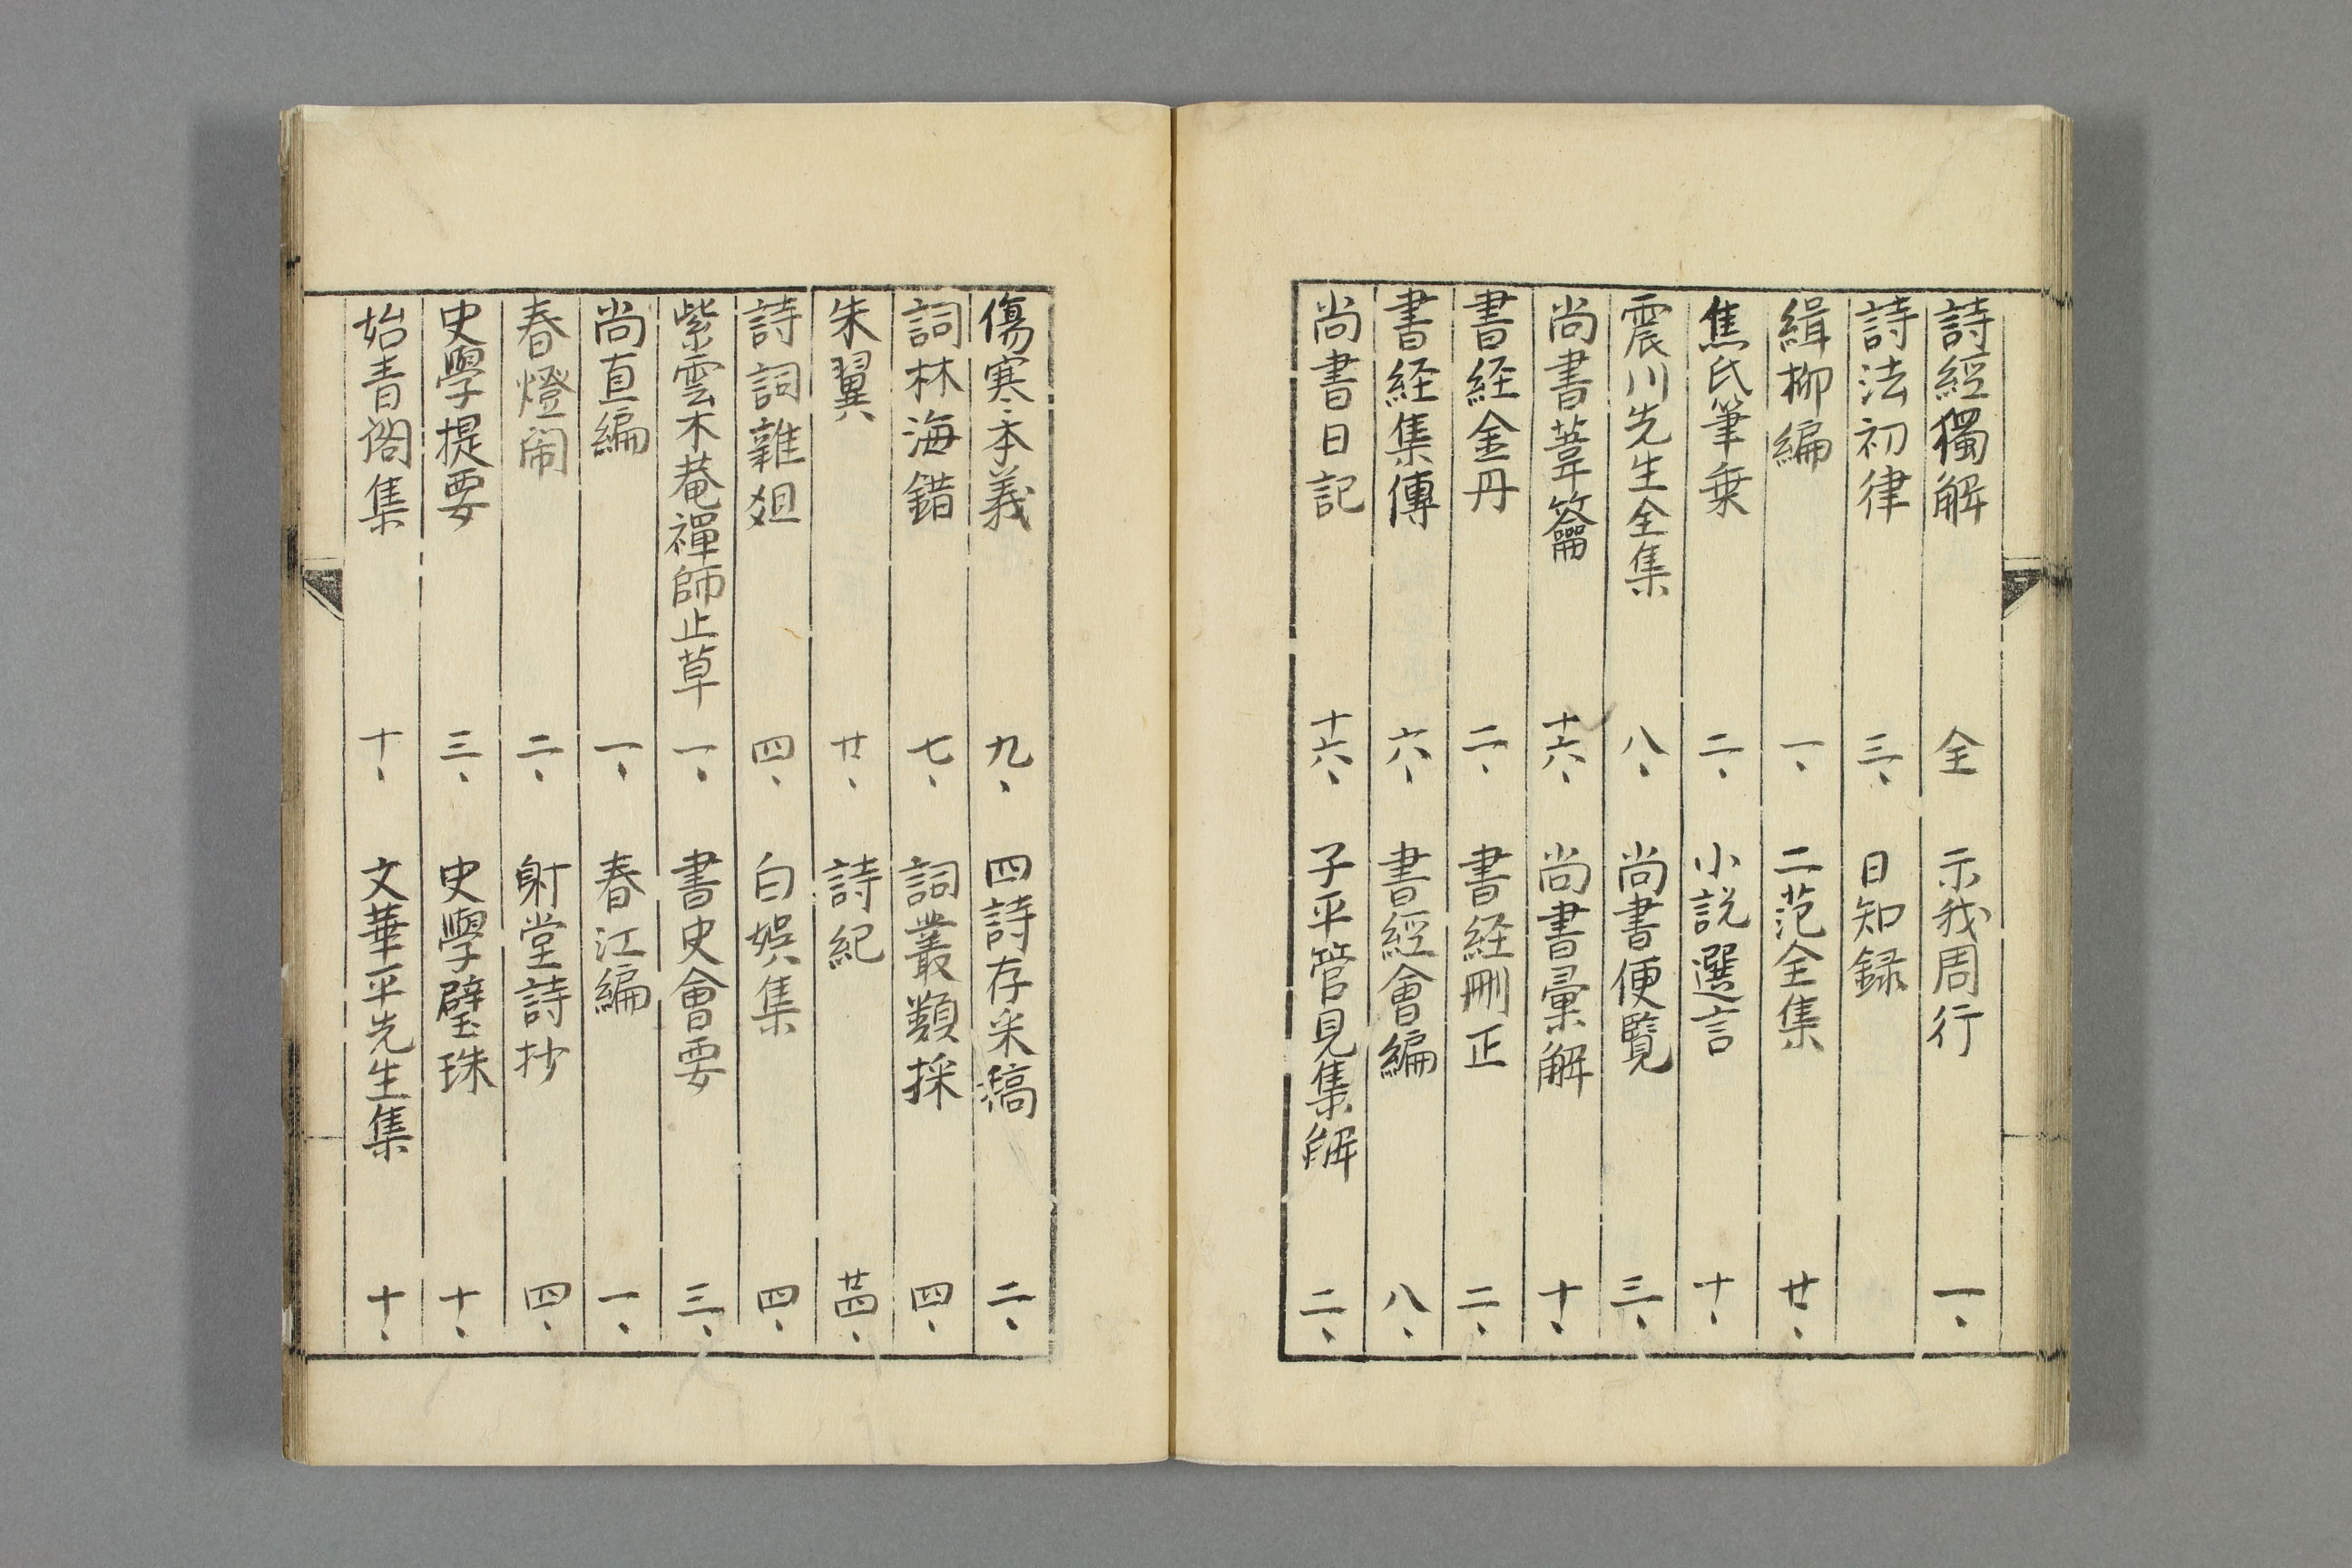 詩經獨解 全 示我周行 一、
詩法初律 三、 日知録
緝柳編 一、 二范全集 廿、
焦氏筆乗 二、 小説選言 十、
震川先生全集 八、 尚書便覽 三、
尚書葦籥 十六、 尚書彙解 十、
書経金丹 二、 書経刪正 二、
書経集傳 六、 書經會編 八、
尚書日記 十六、 子平管見集解 二、
傷寒本義 九、 四詩存采稿 二、
詞林海錯 七、 詞叢類採 四、
朱翼 廿、 詩紀 廿四、
詩詞雜爼 四、 白娯集 四、
紫雲木菴禪師止草 一、 書史會要 三、
尚直編 一、 春江編 一、
春燈闹 二、 射堂詩抄 四、
史學提要 三、 史學璧珠 十、
始青阁集 十、 文華平先生集 十、